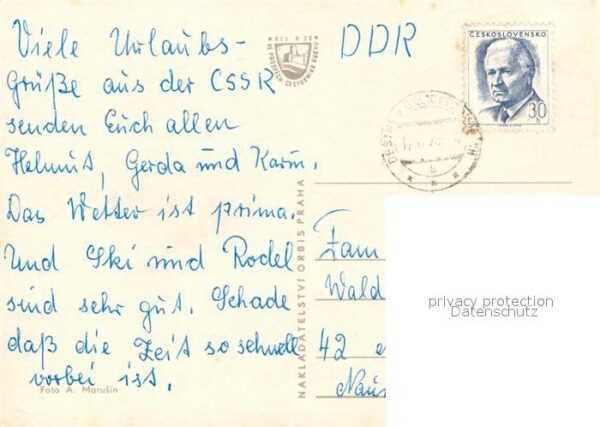 Viele Urlaubs-
Grüße aus der CSSR
senden Euch allen
Helmut, Gerda und Karin.
Das Wetter ist prima.
Und Ski und Rodel
sind sehr gut. Schade
daß die Zeit so schnell
vorbei ist.
Foto A. Marušin
NAKLADATELSTVÍ ORBIS PRAHA
DDR
ČESKOSLOVENSKO
30
h
Fam
Wald
42
privacy protection
Datenschutz